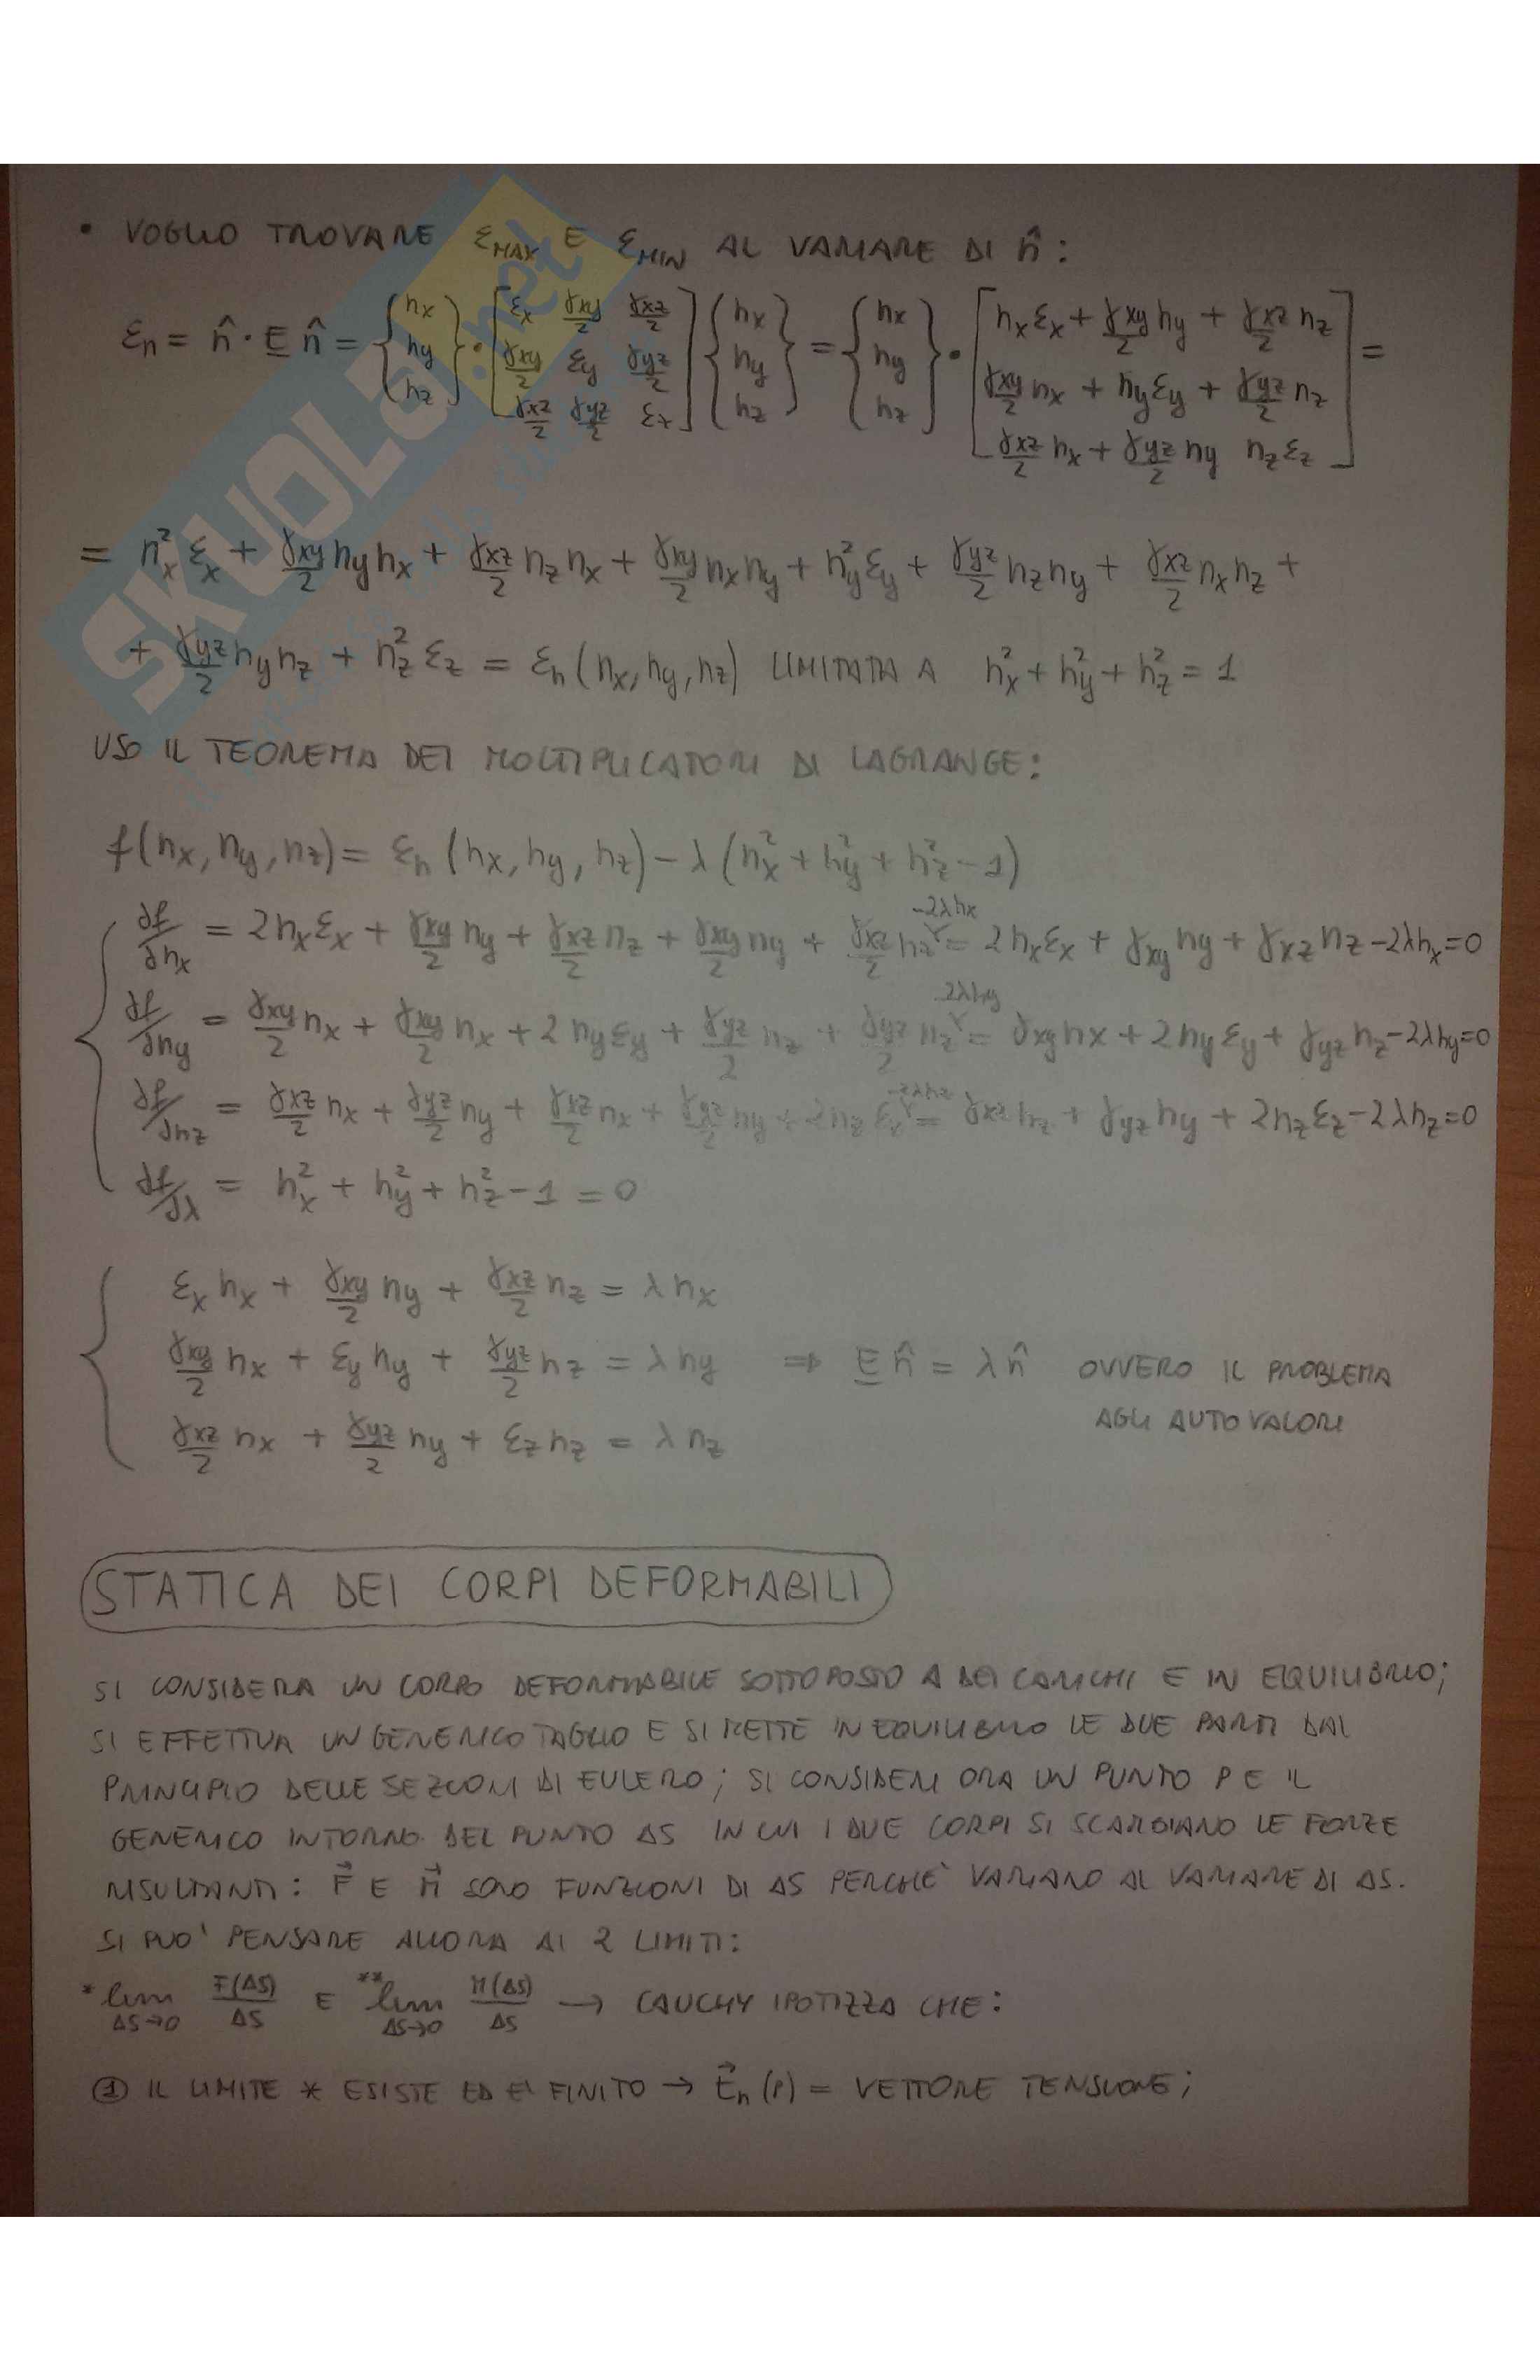 • VOGLIO TROVARE ε_MAX E ε_MIN AL VARIARE DI n̂:
ε_n = n̂ · E n̂ = {n_x n_y n_z} · [ε_x γxy/2 γxz/2; γxy/2 ε_y γyz/2; γxz/2 γyz/2 ε_z] {n_x n_y n_z} = {n_x n_y n_z} · [n_x ε_x + γxy/2 n_y + γxz/2 n_z; γxy/2 n_x + n_y ε_y + γyz/2 n_z; γxz/2 n_x + γyz/2 n_y n_z ε_z] =
= n_x² ε_x + γxy/2 n_y n_x + γxz/2 n_z n_x + γxy/2 n_x n_y + n_y² ε_y + γyz/2 n_z n_y + γxz/2 n_x n_z +
+ γyz/2 n_y n_z + n_z² ε_z = ε_n (n_x, n_y, n_z) LIMITATA A n_x² + n_y² + n_z² = 1
USO IL TEOREMA DEI MOLTIPLICATORI DI LAGRANGE:
f(n_x, n_y, n_z) = ε_n (n_x, n_y, n_z) - λ (n_x² + n_y² + n_z² - 1)
∂f/∂n_x = 2n_x ε_x + γxy/2 n_y + γxz/2 n_z + γxy/2 n_y + γxz/2 n_z -2λn_x = 2n_x ε_x + γxy n_y + γxz n_z - 2λn_x = 0
∂f/∂n_y = γxy/2 n_x + γxy/2 n_x + 2 n_y ε_y + γyz/2 n_z + γyz/2 n_z -2λn_y = γxy n_x + 2 n_y ε_y + γyz n_z - 2λn_y = 0
∂f/∂n_z = γxz/2 n_x + γyz/2 n_y + γxz/2 n_x + γyz/2 n_y + 2n_z ε_z -2λn_z = γxz n_z + γyz n_y + 2n_z ε_z - 2λn_z = 0
∂f/∂λ = n_x² + n_y² + n_z² - 1 = 0
ε_x n_x + γxy/2 n_y + γxz/2 n_z = λ n_x
γxy/2 n_x + ε_y n_y + γyz/2 n_z = λ n_y ⇒ E n̂ = λ n̂ OVVERO IL PROBLEMA
AGLI AUTOVALORI
γxz/2 n_x + γyz/2 n_y + ε_z n_z = λ n_z
STATICA DEI CORPI DEFORMABILI
SI CONSIDERA UN CORPO DEFORMABILE SOTTOPOSTO A DEI CARICHI E IN EQUILIBRIO;
SI EFFETTUA UN GENERICO TAGLIO E SI METTE IN EQUILIBRIO LE DUE PARTI DAL
PRINCIPIO DELLE SEZIONI DI EULERO; SI CONSIDERI ORA UN PUNTO P E IL
GENERICO INTORNO DEL PUNTO ΔS IN CUI I DUE CORPI SI SCAMBIANO LE FORZE
RISULTANTI: F⃗ E M⃗ SONO FUNZIONI DI ΔS PERCHE' VARIANO AL VARIARE DI ΔS.
SI PUO' PENSARE ALLORA AI 2 LIMITI:
* lim ΔS→0 F(ΔS)/ΔS E ** lim ΔS→0 M(ΔS)/ΔS → CAUCHY IPOTIZZA CHE:
① IL LIMITE * ESISTE ED E' FINITO → t⃗_n (P) = VETTORE TENSIONE;
SKUOLA.net